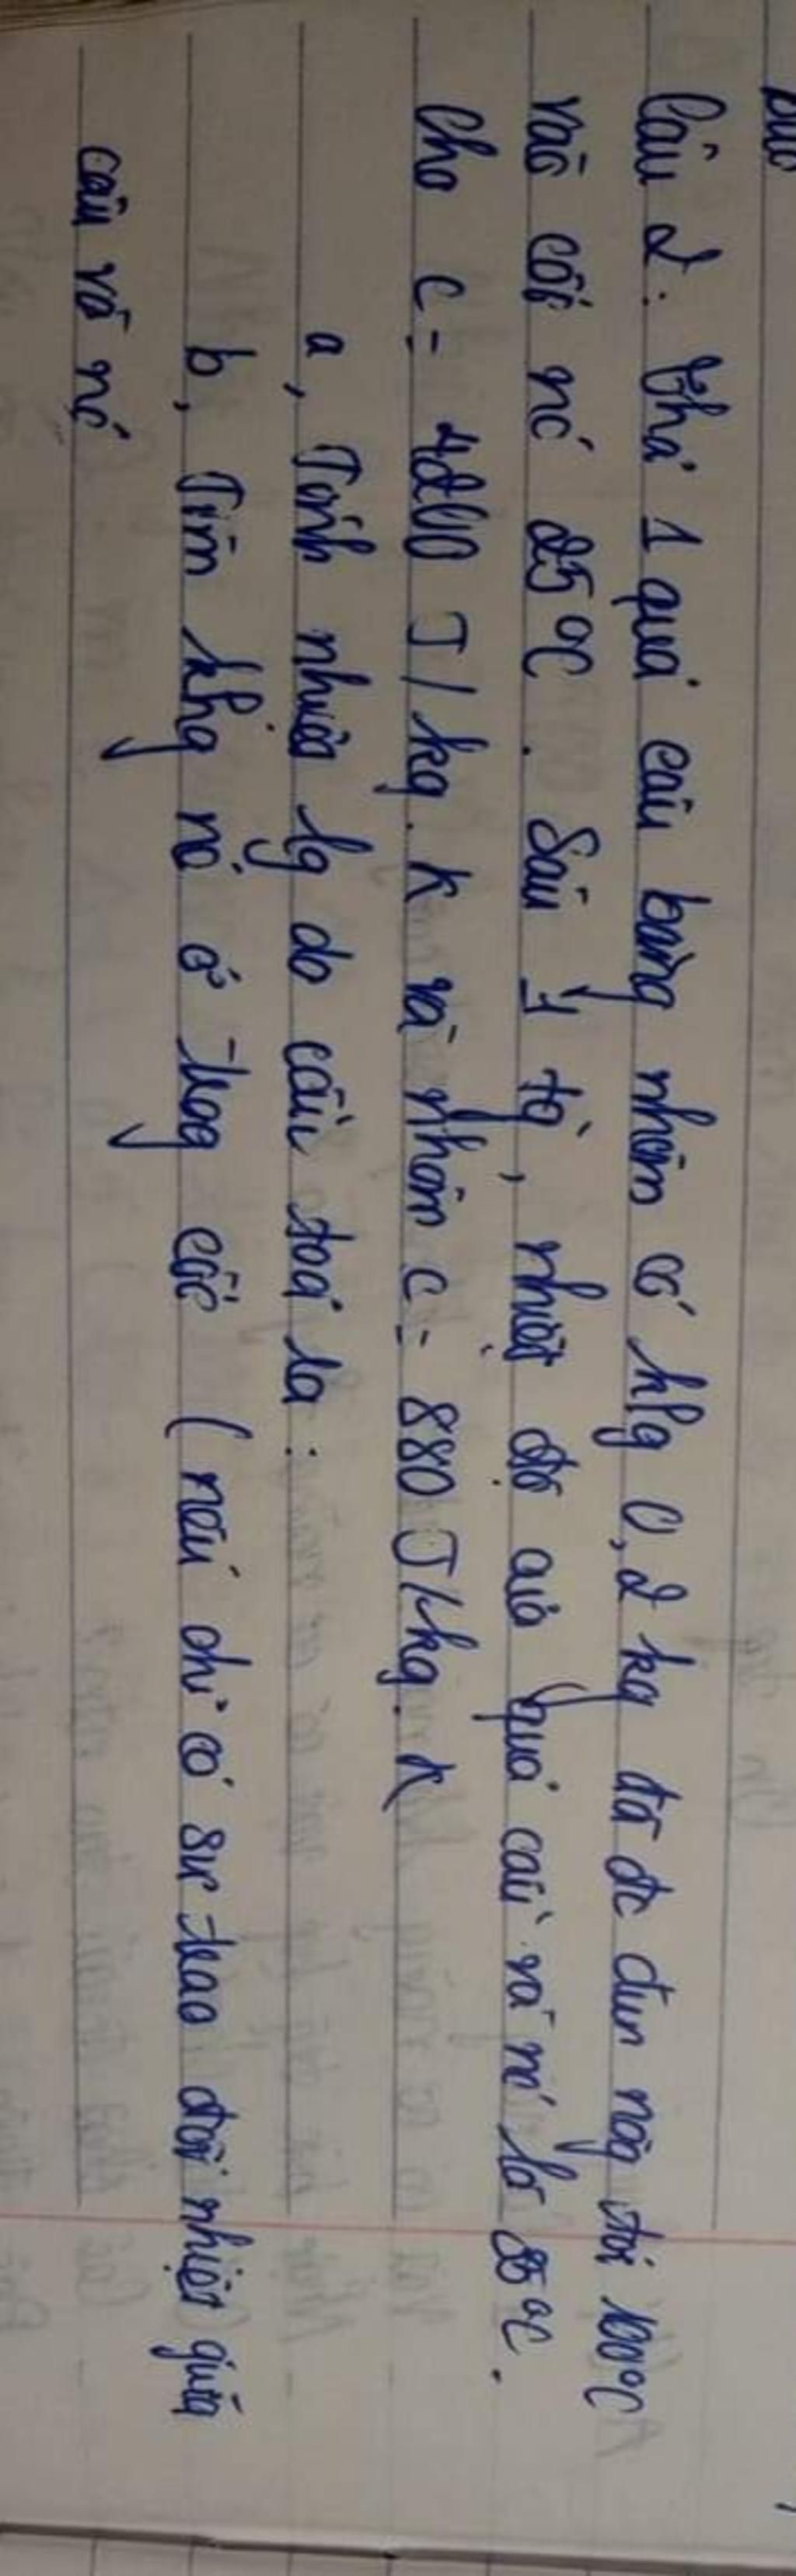 Câu 2: Thả 1 quả cầu bằng nhôm có klg 0,2 kg đã đc đun nóg tới 100°C
vào cốc nc 25°C. Sau 1 tg, nhiệt độ của quả cầu và nc là 35°C.
Cho c = 4200 J/kg.K và nhôm c = 880 J/kg.K
a, Tính nhiệt lg do cầu toả ra:
b, Tìm khg nc ở trog cốc (nếu chỉ có sự trao đổi nhiệt giữa
cầu và nc